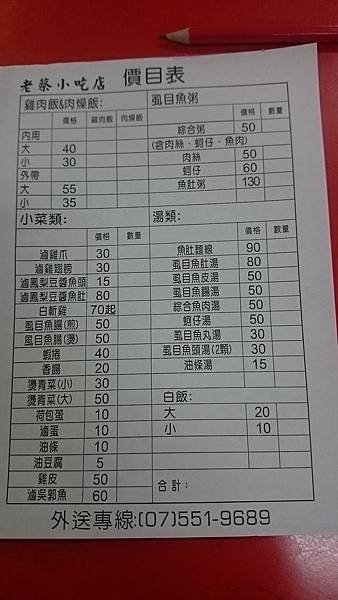 老蔡小吃店 價目表
雞肉飯&肉燥飯: 虱目魚粥
價格 雞肉飯 肉燥飯 價格 數量
內用 綜合粥 50
大 40 (含肉絲、蚵仔、魚肉)
小 30 肉絲 50
外帶 蚵仔 60
大 55 魚肚粥 130
小 35
小菜類: 湯類:
價格 數量 價格 數量
滷雞爪 30 魚肚麵線 90
滷雞翅膀 30 虱目魚肚湯 80
滷鳳梨豆醬魚頭 15 虱目魚皮湯 50
滷鳳梨豆醬魚肚 80 虱目魚腸湯 50
白斬雞 70起 綜合魚肉湯 50
虱目魚腸(煎) 50 蚵仔湯 50
虱目魚腸(燙) 50 虱目魚丸湯 30
蝦捲 40 虱目魚頭湯(2顆) 30
香腸 20 油條湯 15
燙青菜(小) 30
燙青菜(大) 50 白飯:
荷包蛋 10 大 20
滷蛋 10 小 10
油條 10
油豆腐 5
雞皮 50 合計:
滷吳郭魚 60
外送專線:(07)551-9689